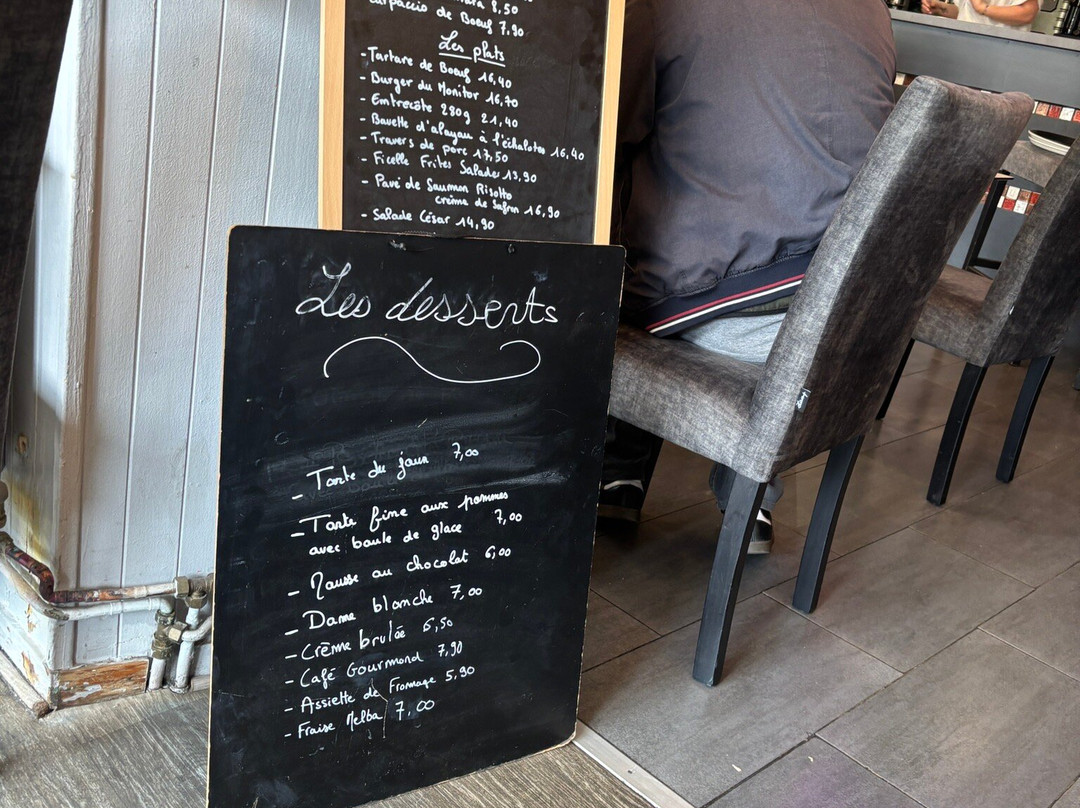 8,50
Carpaccio de Boeuf 7,90
Les plats
- Tartare de Boeuf 16,40
- Burger du Monitor 16,70
- Entrecôte 280g 21,40
- Bavette d'aloyau à l'échalotes 16,40
- Travers de porc 17,50
- Ficelle Frites Salade 13,90
- Pavé de Saumon Risotto
crème de Safran 16,90
- Salade César 14,90
Les desserts
- Tarte du jour 7,00
- Tarte fine aux pommes
avec boule de glace 7,00
- Mousse au chocolat 6,00
- Dame blanche 7,00
- Crème brulée 6,50
- Café Gourmand 7,90
- Assiette de Fromage 5,90
- Fraise Melba 7,00